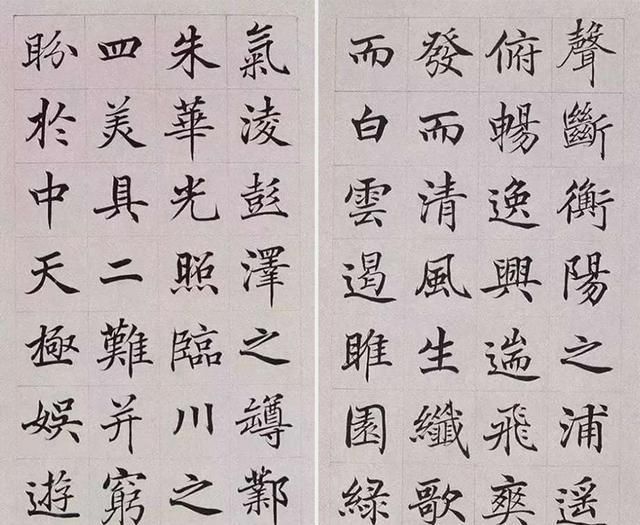 聲斷衡陽之浦遥
俯暢逸興遄飛爽
發而清風生纖歌
而白雲遏睢園緑
氣淩彭澤之罇鄴
朱華光照臨川之
四美具二難并窮
盼於中天極娯遊